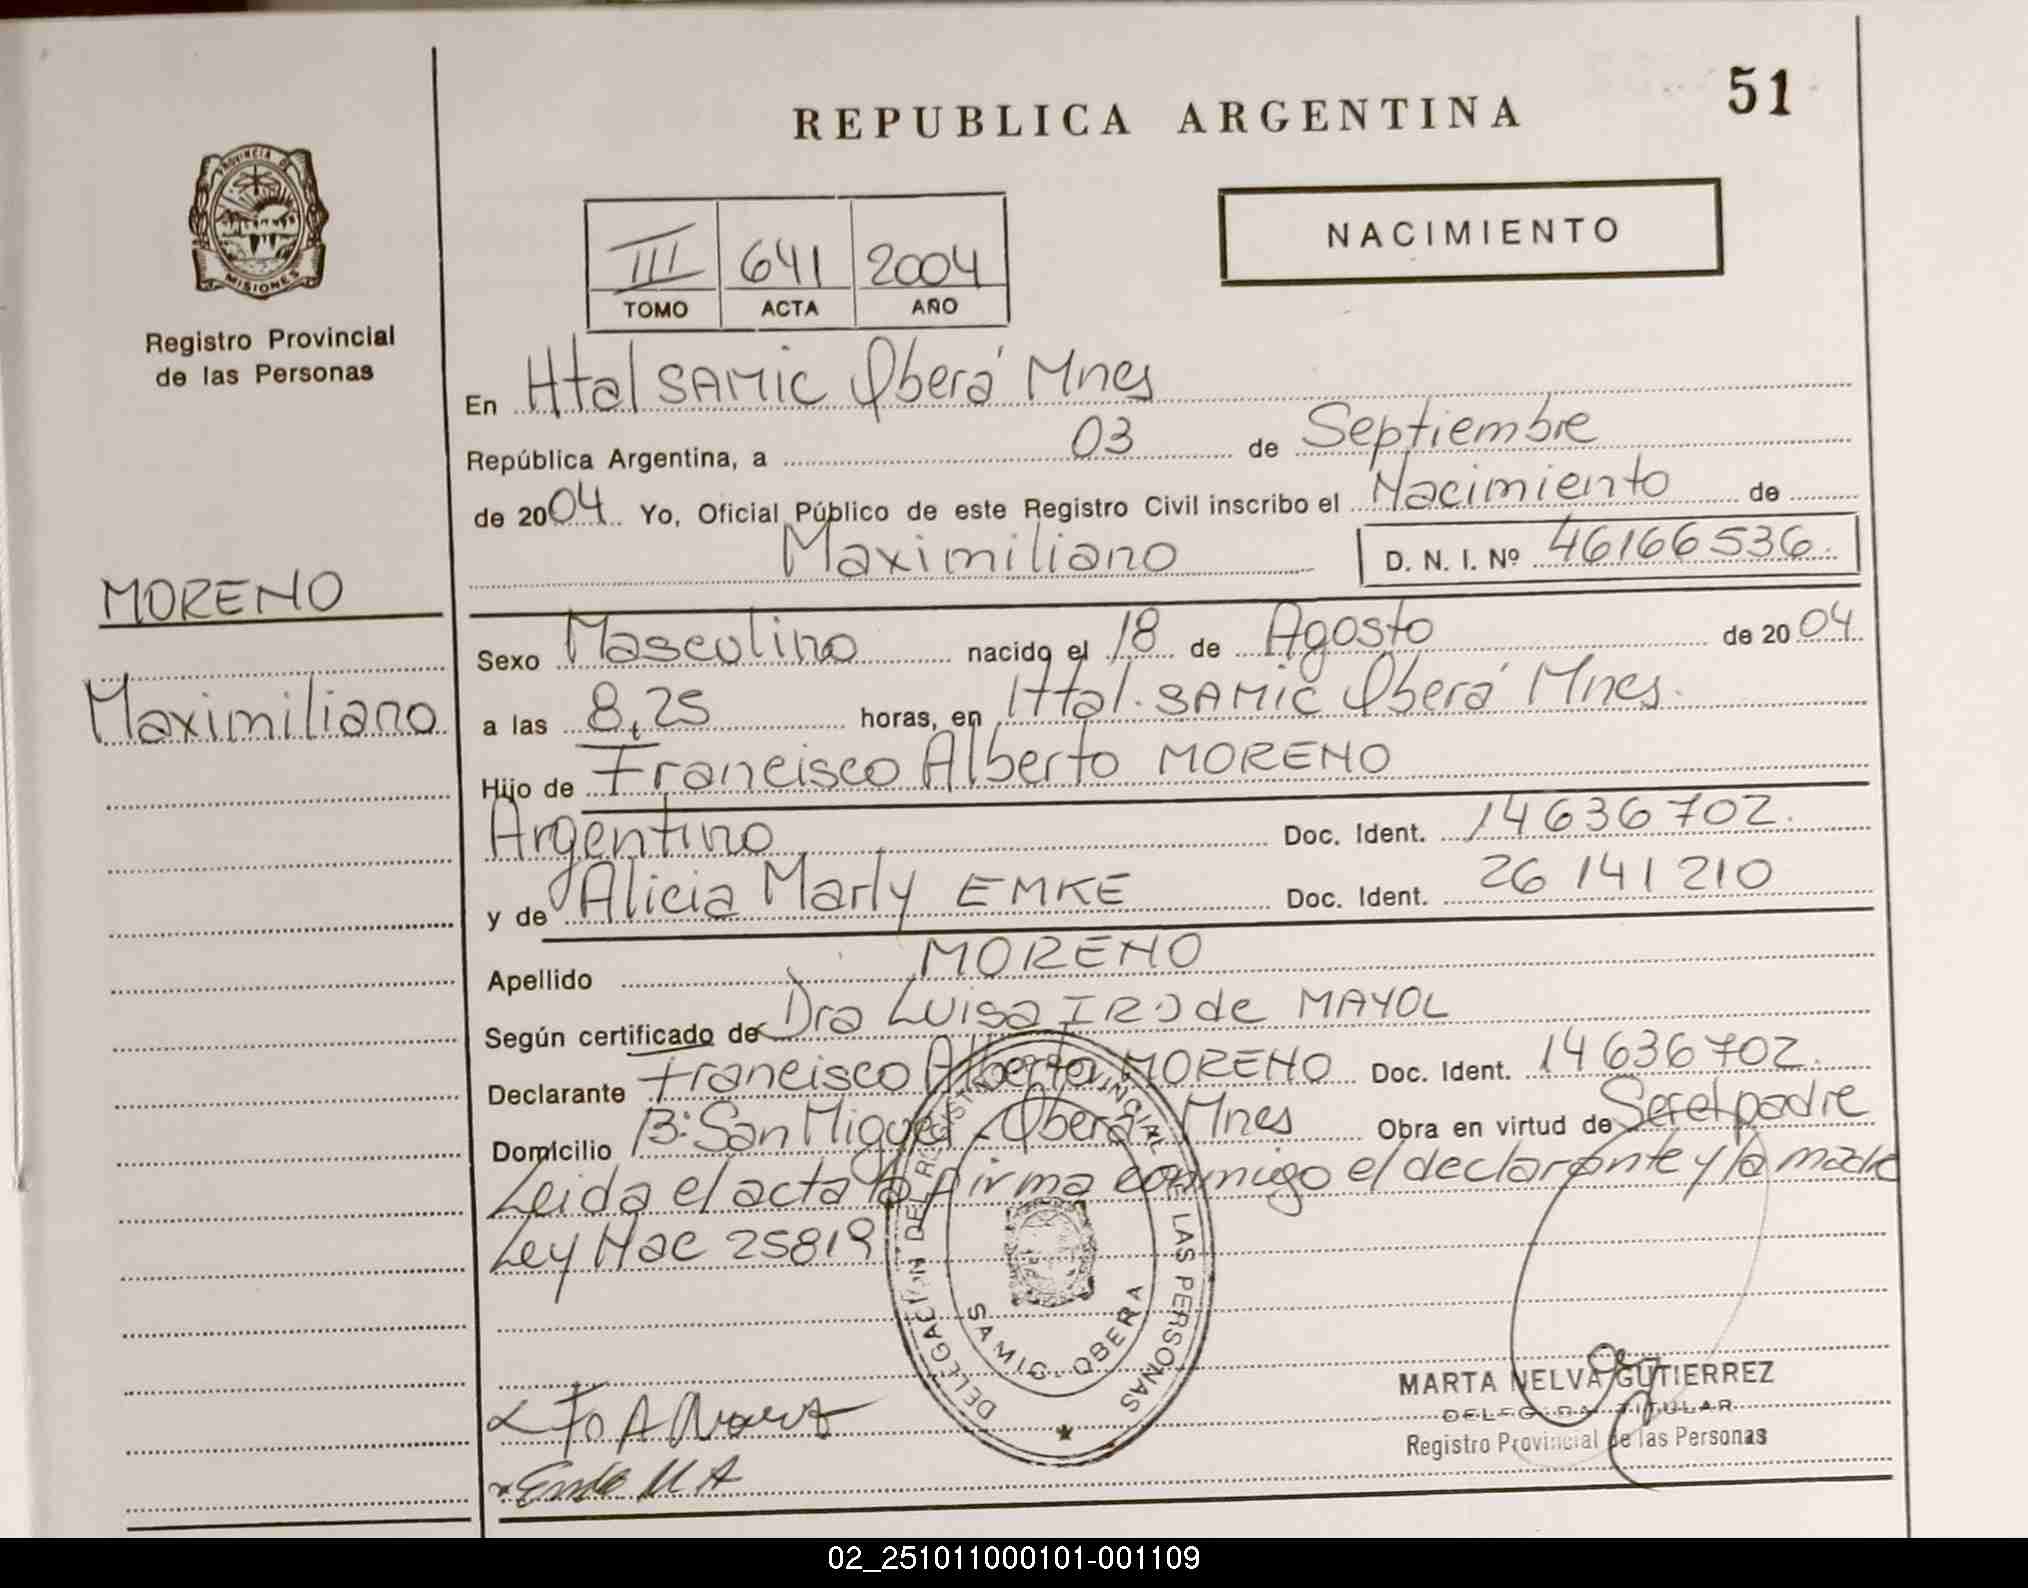 51
REPUBLICA ARGENTINA
NACIMIENTO
PROVINCIA DE
MISIONES
Registro Provincial
de las Personas
III 641 2004
TOMO ACTA AÑO
En Htal SAMIC Oberá Mnes
República Argentina, a 03 de Septiembre
de 2004 Yo, Oficial Público de este Registro Civil inscribo el Nacimiento de
Maximiliano D. N. I. Nº 46166536
MORENO
Maximiliano
Sexo Masculino nacido el 18 de Agosto de 2004
a las 8,25 horas, en Htal. SAMIC Oberá Mnes.
Hijo de Francisco Alberto MORENO
Argentino Doc. Ident. 14636702.
y de Alicia Marly EMKE Doc. Ident. 26 141 210
Apellido MORENO
Según certificado de Dra Luisa de MAYOL
Declarante Francisco Alberto MORENO Doc. Ident. 14636702.
Domicilio B: San Miguel - Oberá - Mnes Obra en virtud de Ser el padre
Leida el acta la firma conmigo el declarante y la madre
Ley Nac 25819
DELEGACIÓN DEL REGISTRO PROVINCIAL DE LAS PERSONAS
SAMIC - OBERA
MARTA NELVA GUTIERREZ
DELEGADA TITULAR
Registro Provincial de las Personas
02_251011000101-001109